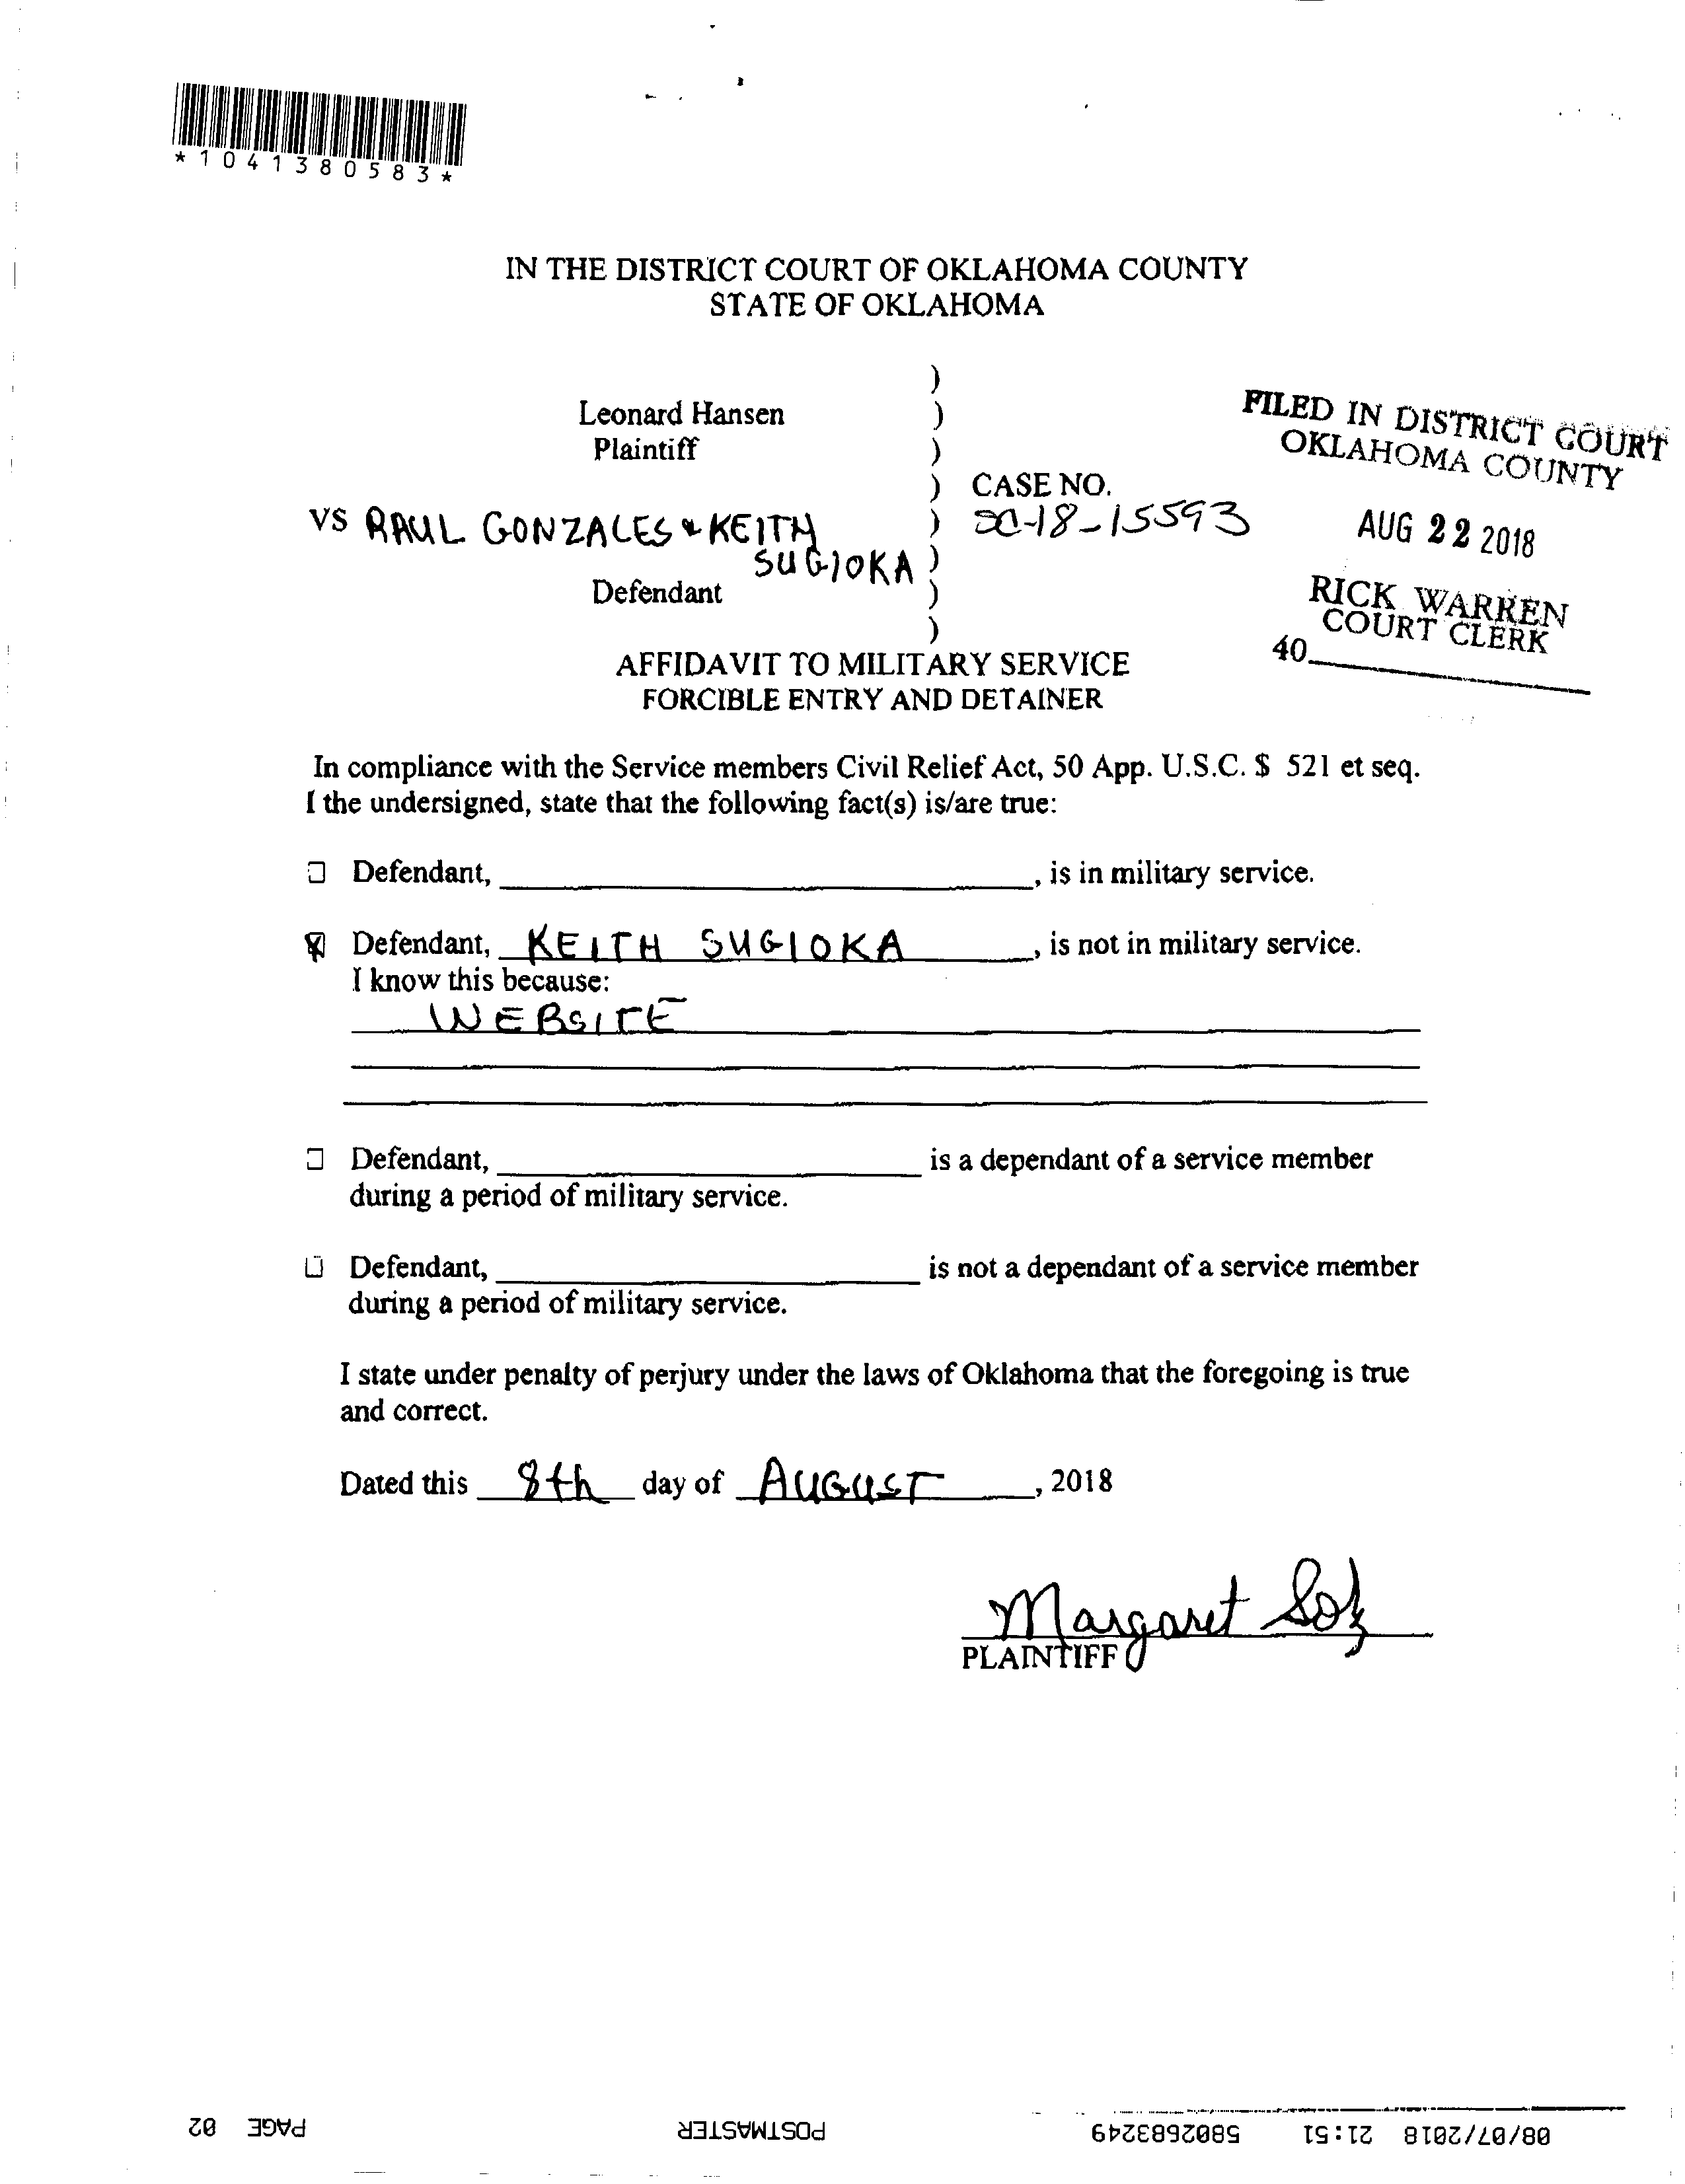 *1041380583*
IN THE DISTRICT COURT OF OKLAHOMA COUNTY
STATE OF OKLAHOMA
)
Leonard Hansen )
Plaintiff )
) CASE NO.
VS RAUL GONZALES & KEITH ) SC-18-15593
SUGIOKA )
Defendant )
)
FILED IN DISTRICT COURT
OKLAHOMA COUNTY
AUG 22 2018
RICK WARREN
COURT CLERK
40
AFFIDAVIT TO MILITARY SERVICE
FORCIBLE ENTRY AND DETAINER
In compliance with the Service members Civil Relief Act, 50 App. U.S.C. $ 521 et seq.
I the undersigned, state that the following fact(s) is/are true:
Defendant, , is in military service.
Defendant, KEITH SUGIOKA , is not in military service.
I know this because:
WEBSITE
Defendant, is a dependant of a service member
during a period of military service.
Defendant, is not a dependant of a service member
during a period of military service.
I state under penalty of perjury under the laws of Oklahoma that the foregoing is true
and correct.
Dated this 8th day of AUGUST , 2018
Margaret
PLAINTIFF
08/07/2018 21:51 5802683249 POSTMASTER PAGE 02